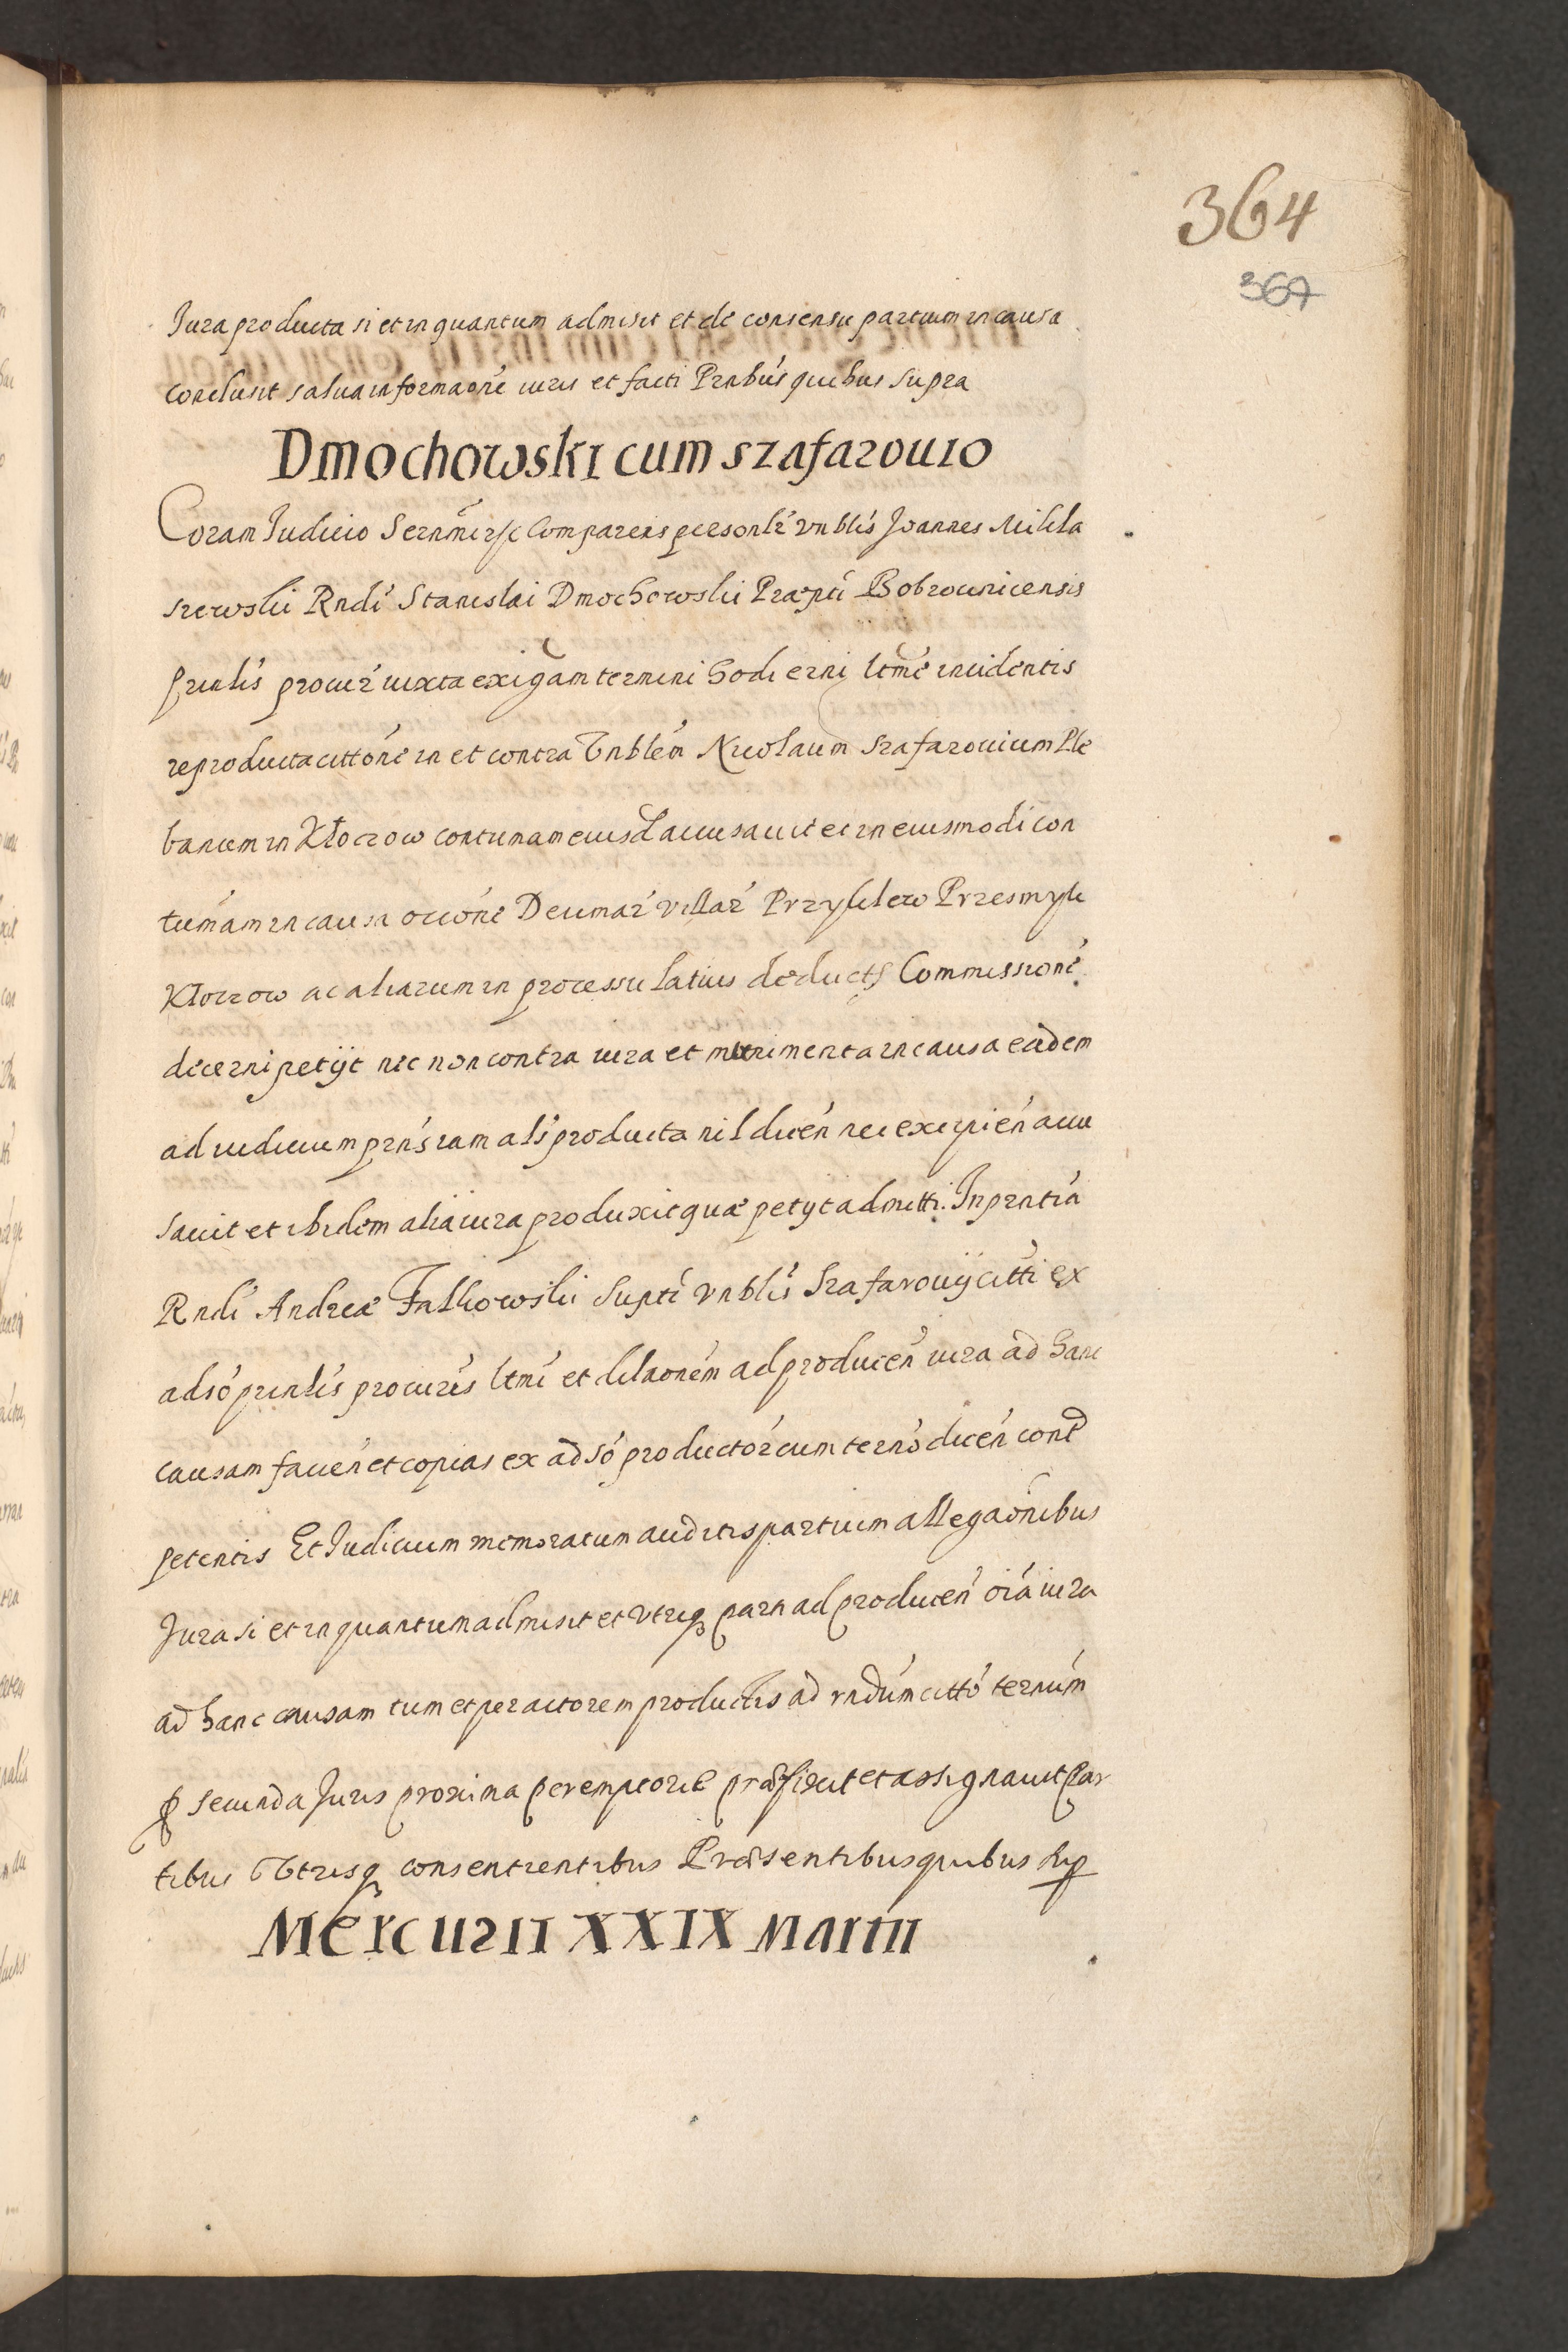 364
367
Iura producta si et in quantum admisit et de consensu partium in causa
conclusit salva informaone iuris et facti Pntibus quibus supra
Dmochowski cum Szafarovio
Coram Iudicio Comparens personlr Vnblis Joannes Mikla
szewski Rndi Stanislai Dmochowski Praepti Bobrownicensis
prnlis procur iuxta exigam termini hodierni ltme incidentis
reproducta cittone in et contra Vnblem Nicolaum Szafarovium Ple
banum in Kłoczow contumam eiusd accusavit et in eiusmodi con
tumam in causa occone Decimar villar Przykłew Przesmyk
Kłoczow ac aliarum in processu latius deduct Commissione
decerni petijt nec non contra iura et munimenta in causa eadem
ad iudicium prns iam als producta nil dicen nec excipien accu
savit et ibidem alia iura produxit quae petyt admitti. In prntia
Rndi Andreae Falkowski Supti Vnblis Szafarovij citti ex
adso prnlis procuris ltmi et dilaonem ad producen iura ad hanc
causam faven et copias ex adso productor cum terno dicen cont
petentis Et Iudicium memoratum auditis partium allegaonibus
Iura si et in quantum admisit et Vtriq parti ad producen oia iura
ad hanc causam tum et per actorem productis ad rndum citto ternum
p secunda Iuris proxima peremptorie praefixit et assignavit Par
tibus Vtrisq consentientibus Praesentibus quibus sup
Mercurii XXIX Martii